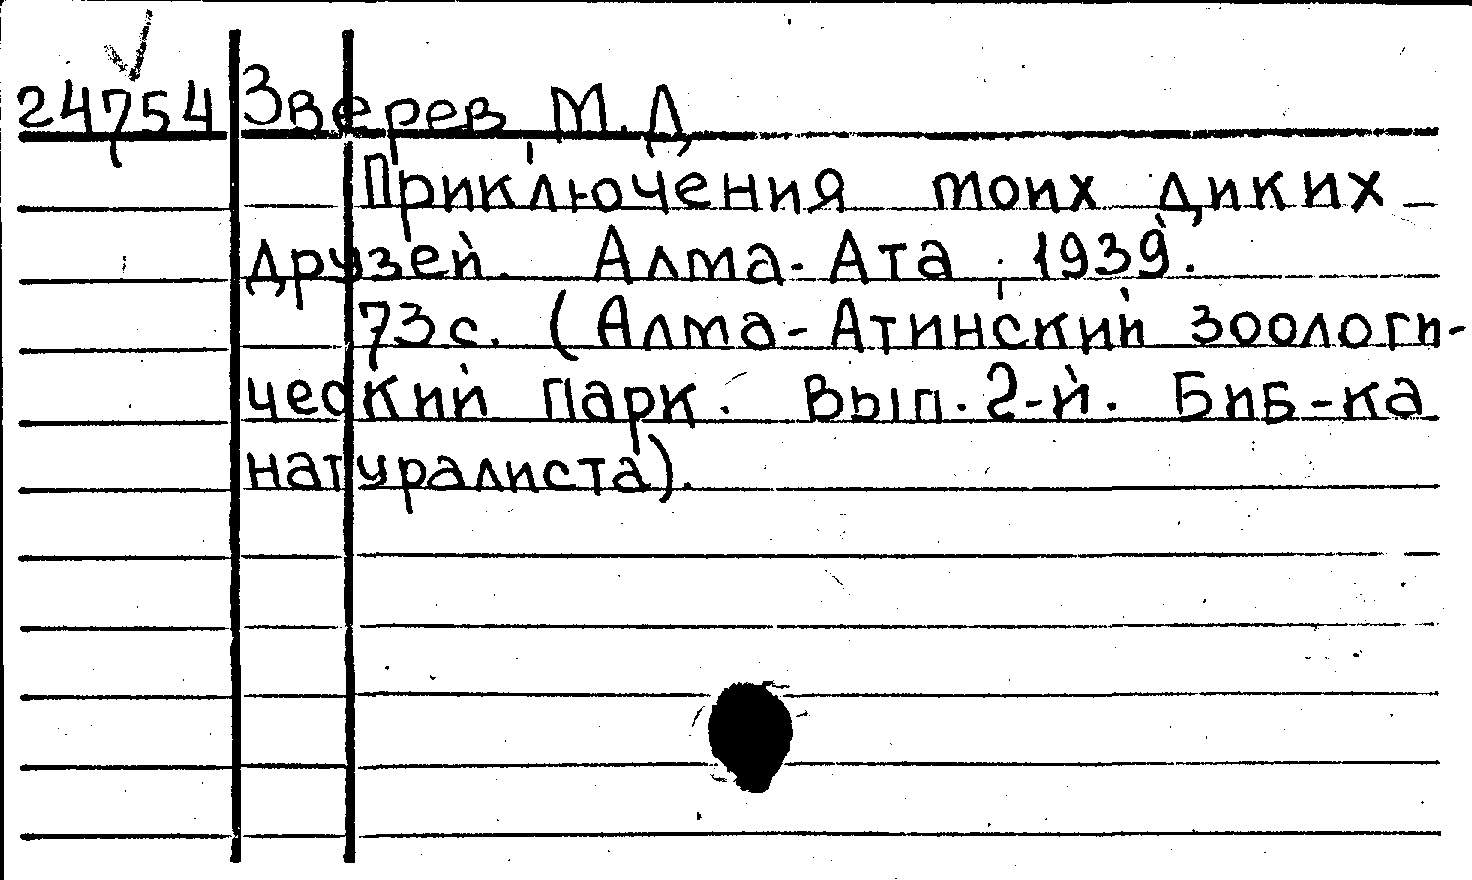 24754 Зверев М.Д
Приключения моих диких
друзей. Алма-Ата. 1939.
73с. (Алма-Атинский зоологи-
ческий парк. Вып. 2-й. Биб-ка
натуралиста).